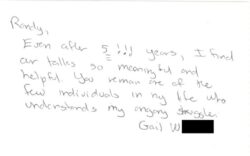 Randy,
Even after 5!!! years, I find
our talks so meaningful and
helpful. You remain one of the
few individuals in my life who
understands my ongoing struggles.
Gail W